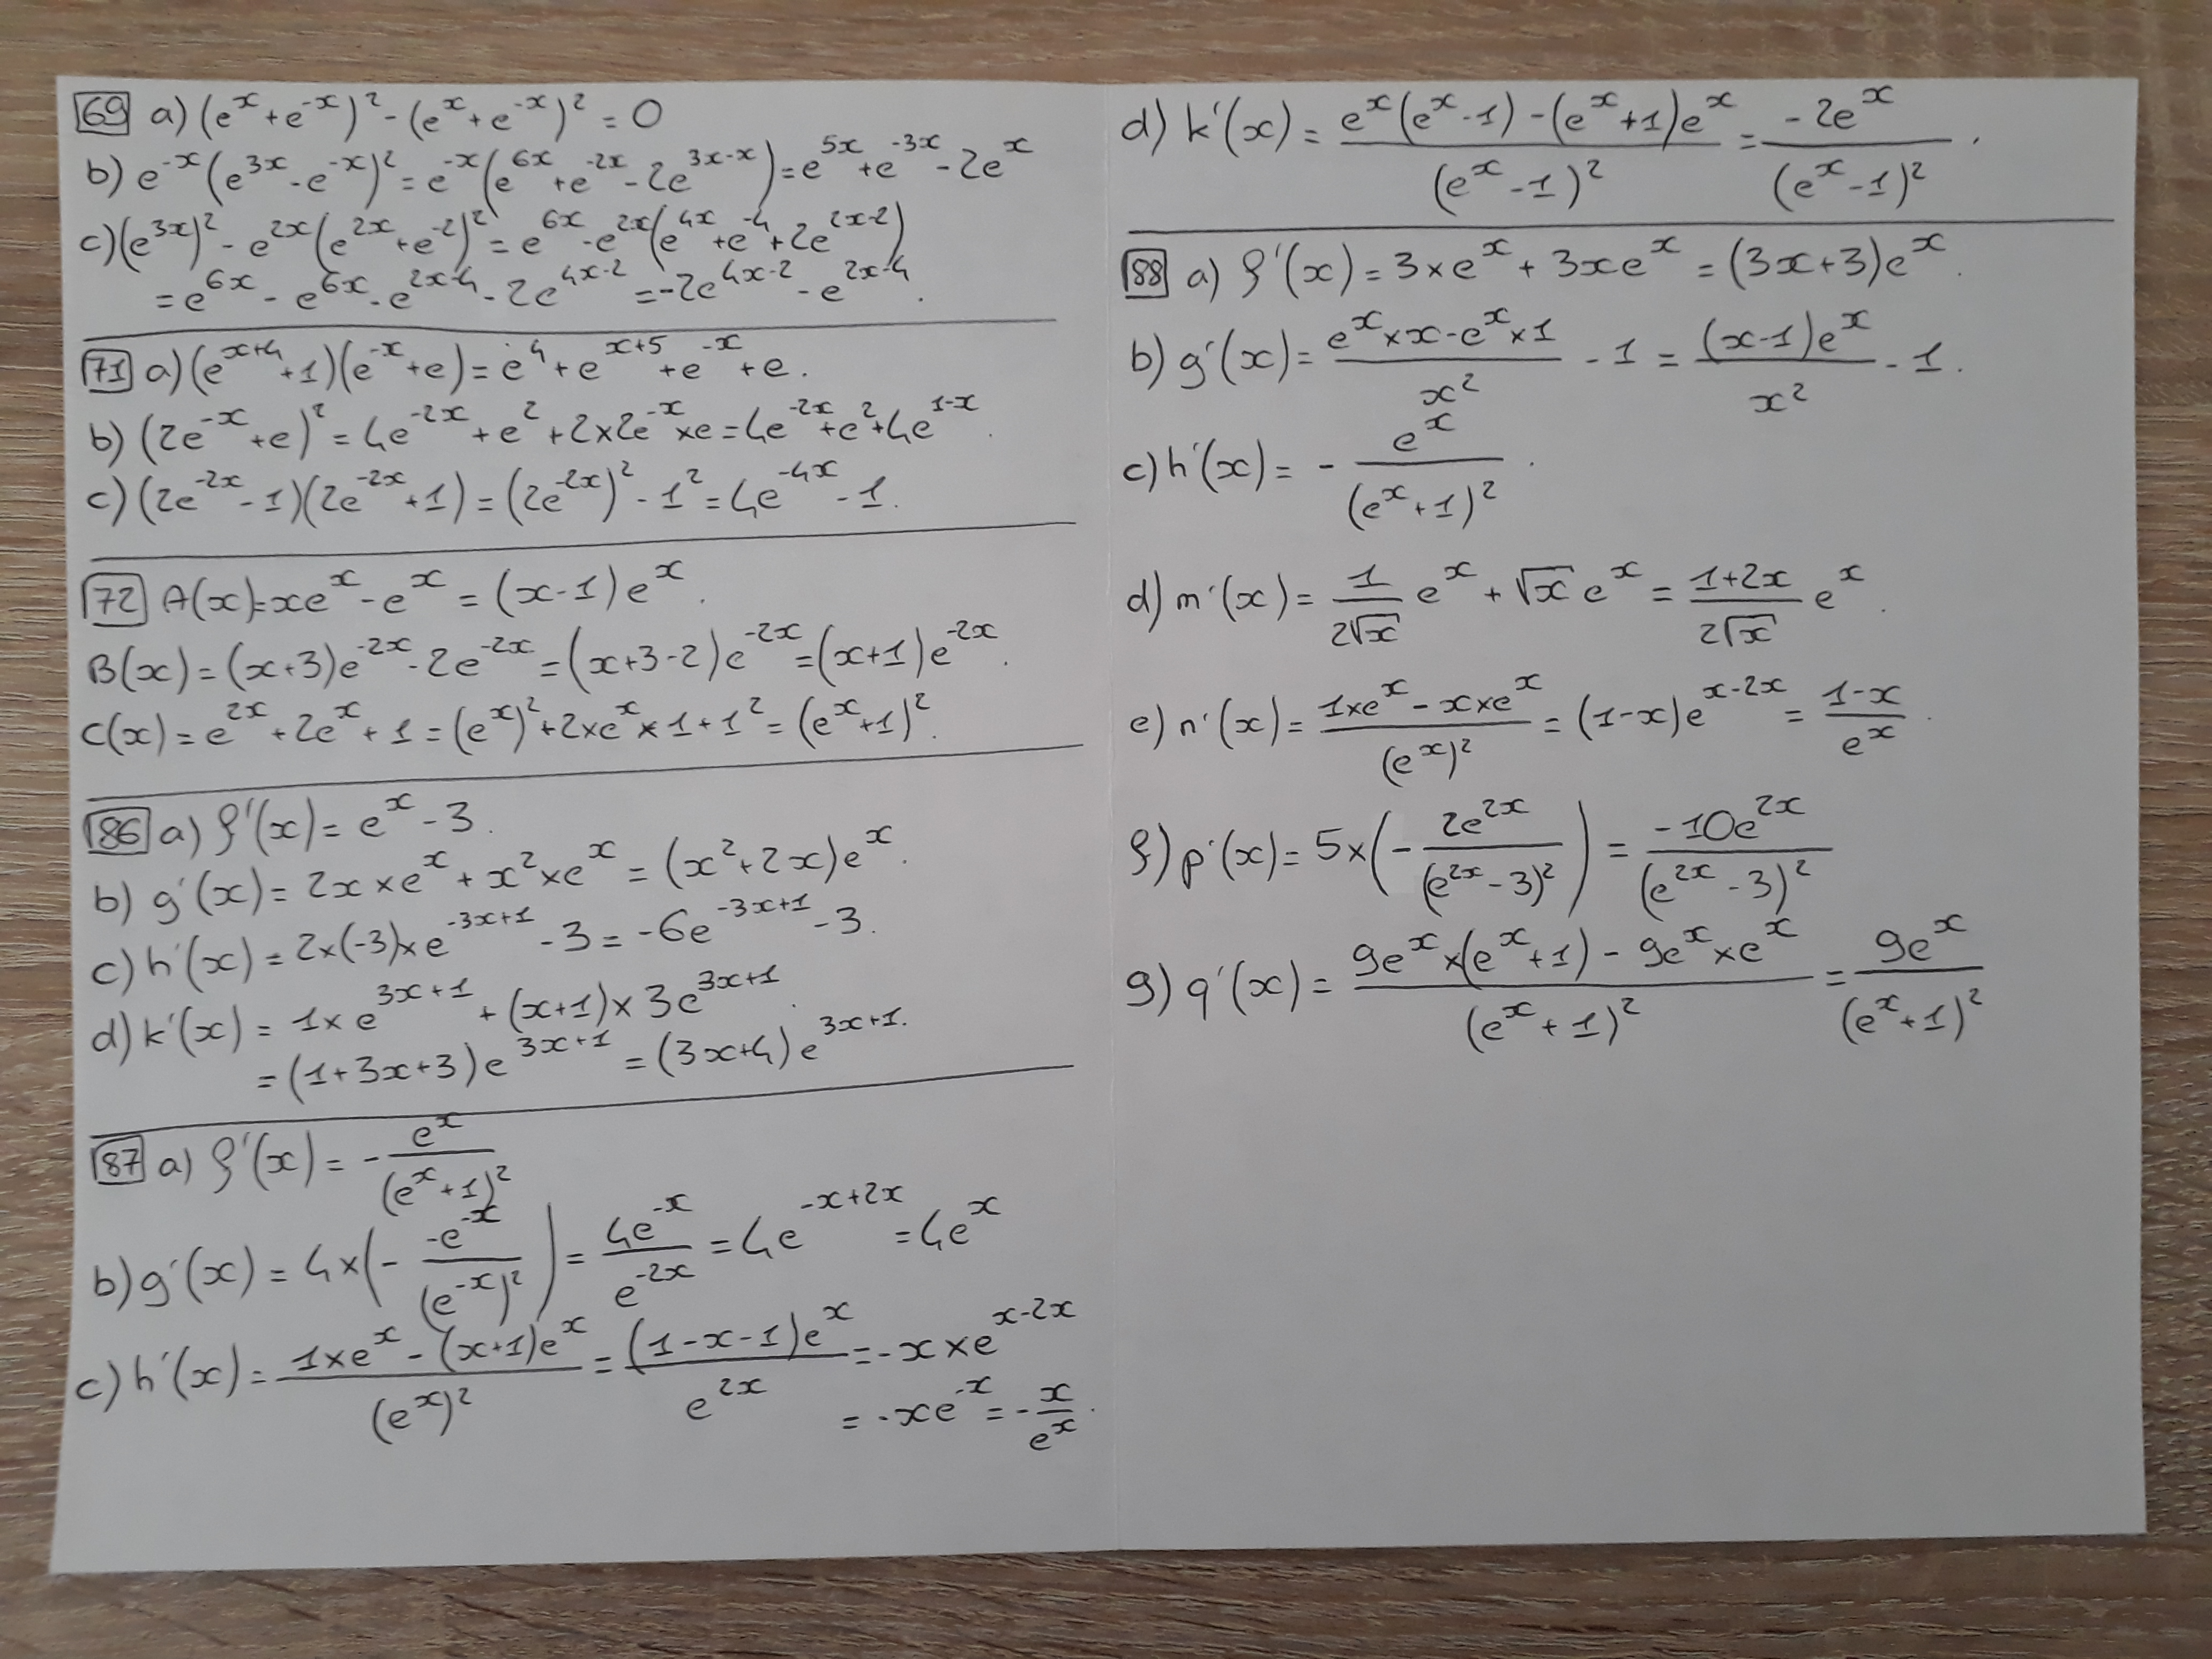 69 a) (e^x + e^-x)^2 - (e^x + e^-x)^2 = 0
b) e^-x (e^3x - e^-x)^2 = e^-x (e^6x + e^-2x - 2e^3x-x) = e^5x + e^-3x - 2e^x
c) (e^3x)^2 - e^2x (e^2x + e^-2)^2 = e^6x - e^2x (e^4x + e^-4 + 2e^2x-2)
= e^6x - e^6x - e^2x-4 - 2e^4x-2 = -2e^4x-2 - e^2x-4.
71 a) (e^x+4 + 1)(e^-x + e) = e^4 + e^x+5 + e^-x + e.
b) (2e^-x + e)^2 = 4e^-2x + e^2 + 2×2e^-x × e = 4e^-2x + e^2 + 4e^1-x.
c) (2e^-2x - 1)(2e^-2x + 1) = (2e^-2x)^2 - 1^2 = 4e^-4x - 1.
72 A(x) = xe^x - e^x = (x-1)e^x.
B(x) = (x+3)e^-2x - 2e^-2x = (x+3-2)e^-2x = (x+1)e^-2x.
C(x) = e^2x + 2e^x + 1 = (e^x)^2 + 2×e^x × 1 + 1^2 = (e^x + 1)^2.
86 a) f'(x) = e^x - 3.
b) g'(x) = 2x × e^x + x^2 × e^x = (x^2 + 2x)e^x.
c) h'(x) = 2×(-3)×e^-3x+1 - 3 = -6e^-3x+1 - 3.
d) k'(x) = 1× e^3x+1 + (x+1)× 3e^3x+1.
= (1+3x+3)e^3x+1 = (3x+4)e^3x+1.
87 a) f'(x) = - e^x / (e^x + 1)^2
b) g'(x) = 4×(- -e^-x / (e^-x)^2) = 4e^-x / e^-2x = 4e^-x+2x = 4e^x
c) h'(x) = 1×e^x - (x+1)e^x / (e^x)^2 = (1-x-1)e^x / e^2x = -x × e^x-2x
= -xe^-x = - x / e^x.
d) k'(x) = e^x(e^x - 1) - (e^x + 1)e^x / (e^x - 1)^2 = -2e^x / (e^x - 1)^2.
88 a) f'(x) = 3×e^x + 3xe^x = (3x+3)e^x.
b) g'(x) = e^x × x - e^x × 1 / x^2 - 1 = (x-1)e^x / x^2 - 1.
c) h'(x) = - e^x / (e^x + 1)^2.
d) m'(x) = 1 / 2√x e^x + √x e^x = 1+2x / 2√x e^x.
e) n'(x) = 1×e^x - x×e^x / (e^x)^2 = (1-x)e^x-2x = 1-x / e^x.
f) p'(x) = 5×(- 2e^2x / (e^2x - 3)^2) = -10e^2x / (e^2x - 3)^2
g) q'(x) = 9e^x ×(e^x + 1) - 9e^x × e^x / (e^x + 1)^2 = 9e^x / (e^x + 1)^2